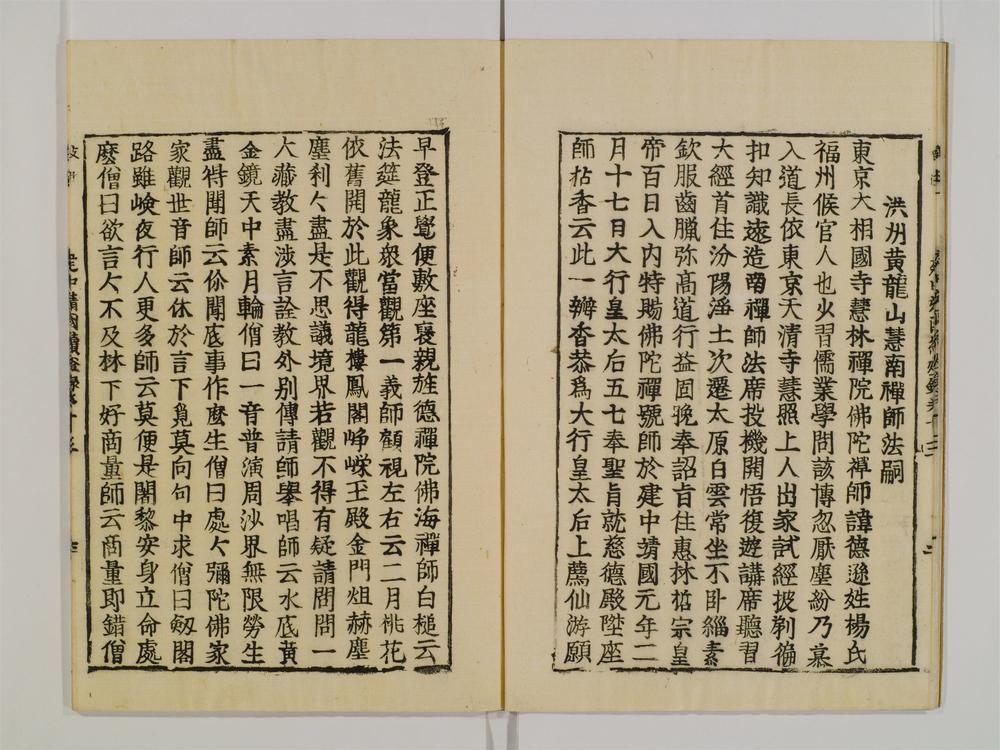 洪州黄龍山慧南禪師法嗣
東京大相國寺慧林禪院佛陀禪師諱德遜姓楊氏
福州候官人也少習儒業學問該博忽厭塵紛乃慕
入道長依東京天清寺慧照上人出家試經披剃徧
扣知識遠造南禪師法席投機開悟復遊講席聽習
大經首住汾陽淨土次遷太原白雲常坐不卧緇素
欽服齒臘弥高道行益固晚奉詔旨住惠林哲宗皇
帝百日入内特賜佛陀禪號師於建中靖國元年二
月十七日大行皇太后五七奉聖旨就慈德殿陞座
師拈香云此一瓣香恭爲大行皇太后上薦仙游願
早登正覺便敷座褒親旌德禪院佛海禪師白槌云
法筵龍象衆當觀第一義師顧視左右云二月桃花
依舊開於此觀得龍樓鳳閣崢嶸玉殿金門烜赫塵
塵刹々盡是不思議境界若觀不得有疑請問問一
大藏教盡涉言詮教外别傳請師舉唱師云水底黄
金鏡天中素月輪僧曰一音普演周沙界無限勞生
盡得聞師云你聞底事作麽生僧曰處々彌陀佛家
家觀世音師云休於言下覓莫向句中求僧曰劔閣
路雖嶮夜行人更多師云莫便是闍黎安身立命處
麽僧曰欲言々不及林下好商量師云商量即錯僧